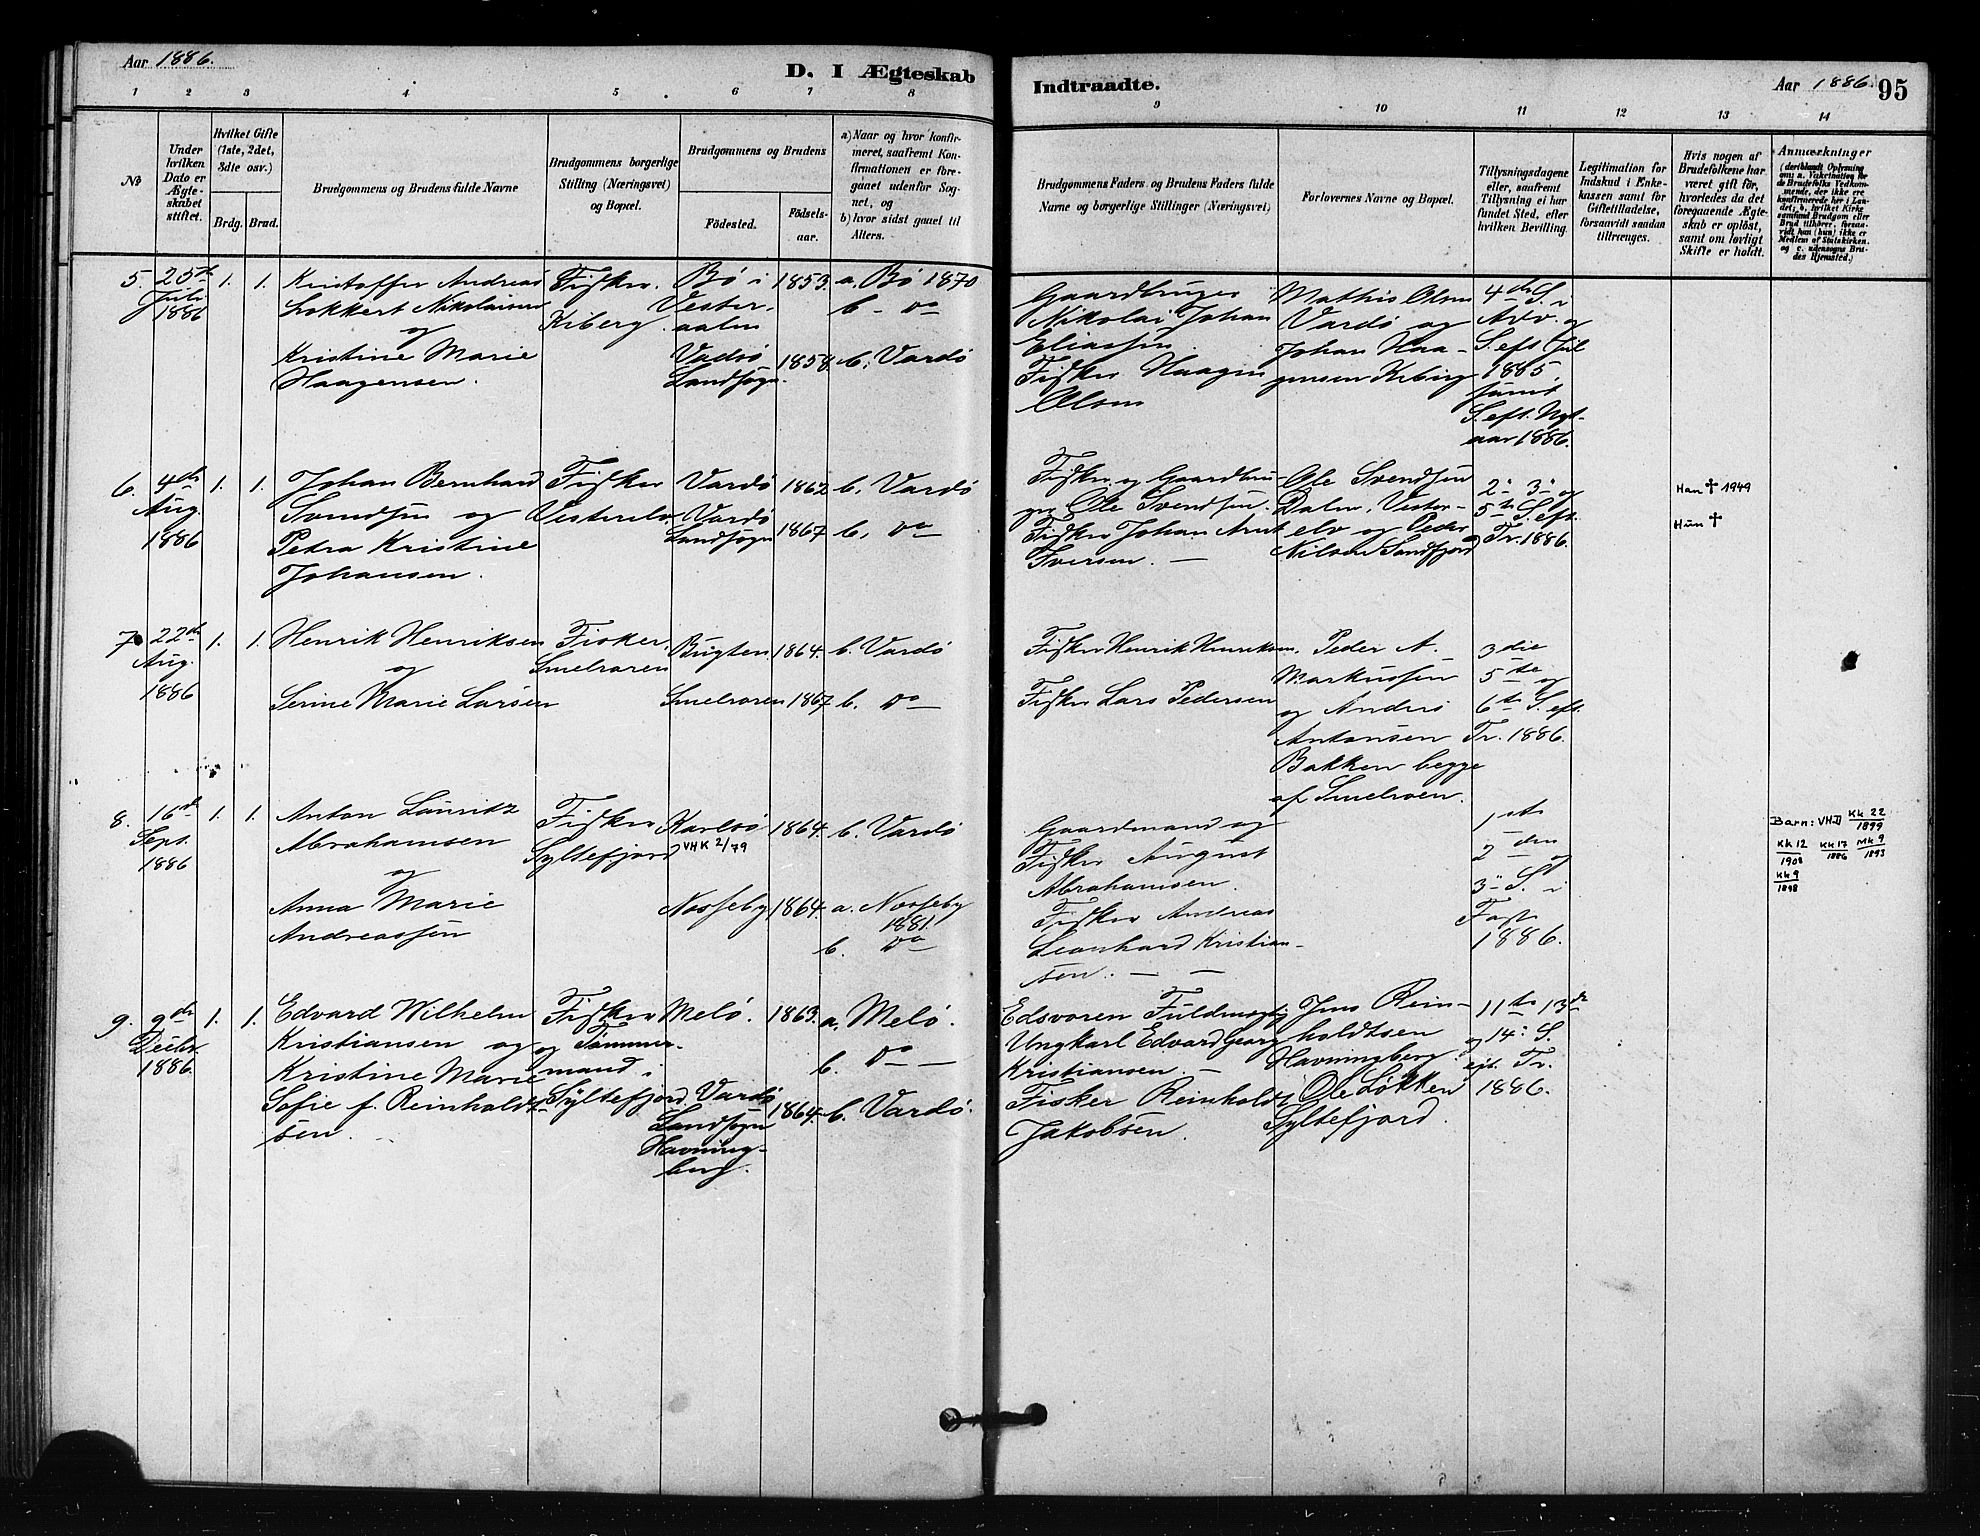 Aar 1886.
D. I Ægteskab
Indtraadte.
Aar 1886. 95
1 2 3 4 5 6 7 8
9 10 11 12 13 14
№
Under hvilken Dato er Ægteskabet stiftet.
Hvilket Gifte (1ste, 2det, 3dte osv.)
Brdg. Brud.
Brudgommens og Brudens fulde Navne
Brudgommens borgerlige Stilling (Næringsvei) og Bopæl.
Brudgommens og Brudens
Fødested.
Fødsels-aar.
a) Naar og hvor konfirmeret, saafremt Konfirmationen er foregaaet udenfor Sognet, og
b) hvor sidst gaaet til Alters.
Brudgommens Faders og Brudens Faders fulde Navne og borgerlige Stillinger (Næringsvei)
Forlovernes Navne og Bopæl.
Tillysningsdagene eller, saafremt Tillysning ei har fundet Sted, efter hvilken Bevilling.
Legitimation for Indskud i Enkekassen samt for Giftetilladelse, forsaavidt saadan tiltrænges.
Hvis nogen af Brudefolkene har været gift før, hvorledes da det foregaaende Ægteskab er opløst, samt om lovligt Skifte er holdt.
Anmærkninger
(deriblandt Oplysning om: a. Vakcination for de Brudefolks Vedkommende, der ikke ere konfirmerede her i Landet; b. hvilket Kirkesamfund Brudgom eller Brud tilhører, forsaavidt han (hun) ikke er Medlem af Statskirken, og c. udensogns Brudes Hjemsted.)
5. 25de Juli 1886 1. 1.
Kristoffer Andreas
Lokkert Nikolaisen
og
Kristine Marie
Haagensen.
Fisker.
Kiberg.
Bø i
Vester-
aalen
1853.
a. Bø 1870
b. Do
Vadsø
Landsogn.
1858.
b. Vardø
Gaardbruger
Nikolai Johan
Eliassen.
Fisker Haagen
Olsen
Mathis Olsen
Vardø og
Johan Haa-
gensen Kiberg
4de S. i
Adv. og
S. eft. Jul
1885,
samt
S. eft. Nyt-
aar 1886.
6. 4de Aug. 1886 1. 1.
Johan Bernhard
Svendsen og
Petra Kristine
Johansen.
Fisker
Vesterelv.
Vardø 1862 b. Vardø
Vardø
Landsogn 1867 b. Do
Fisker og Gaardbru-
ger Ole Svendsen.
Fisker Johan Arnt
Iversen. —
Ole Svendsen
Dalen, Vester-
elv og Peder
Nilsen Sandfjord
2- 3- og
5te S. eft.
Tr. 1886.
Han † 1949
Hun †
7. 22de Aug. 1886 1. 1.
Henrik Henriksen
og
Serine Marie Larsen
Fisker.
Smelroren
Bugten. 1864. b. Vardø
Smelroren 1867 b. Do
Fisker Henrik Henriksen.
Fisker Lars Pedersen
Peder A.
Markussen
og Anders
Antonsen
Bakken begge
af Smelroen.
3die
5te og
6te S. eft.
Tr. 1886.
8. 16de Sept. 1886 1. 1.
Anton Lauritz
Abrahamsen
og
Anna Marie
Andreassen
Fisker
Syltefjord
Karlsø
VHK 2/79
1864. b. Vardø
Nesseby 1864. a. Nesseby
1881.
b. Do
Gaardmand og
Fisker August
Abrahamsen.
Fisker Andreas
Leonhard Kristian-
sen. — —
1ste
2den
og
3- S. i
Faste
1886.
Barn: VHD KK 22/1899
KK 12/1908 KK 17/1886 MK 9/1893
KK 9/1898
9. 9de Decbr. 1886. 1. 1.
Edvard Wilhelm
Kristiansen og
Kristine Marie
Sofie f. Reinholdt-
sen.
Fisker
og Tømmer-
mand i
Syltefjord
Melø. 1863. a. Melø.
b. Do —
Vardø
Landsogn
Havning-
berg.
1864. b. Vardø.
Edsvoren Fuldmægtig
Ungkarl Edvard Georg
Kristiansen. —
Fisker Reinholdt
Jakobsen.
Jens Rein-
holdtsen
Havningberg.
Ole Løkken
Syltefjord.
11te 13de
og 14- S.
eft. Tr.
1886.